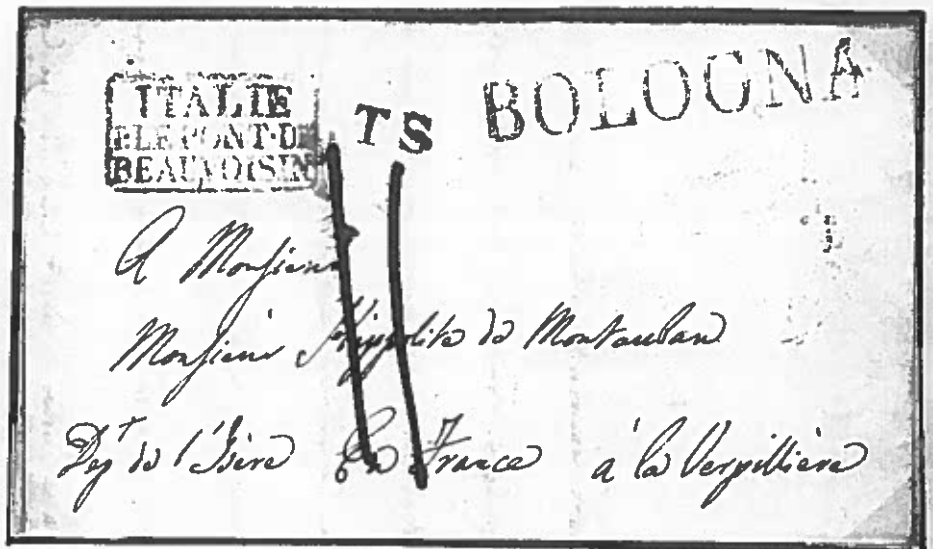 ITALIE
P. LE PONT-D
BEAUVOISIN
TS
BOLOGNA
A Monsieur
Monsieur Hippolite de Montauban
Dept de l'Isère En France à la Verpillière